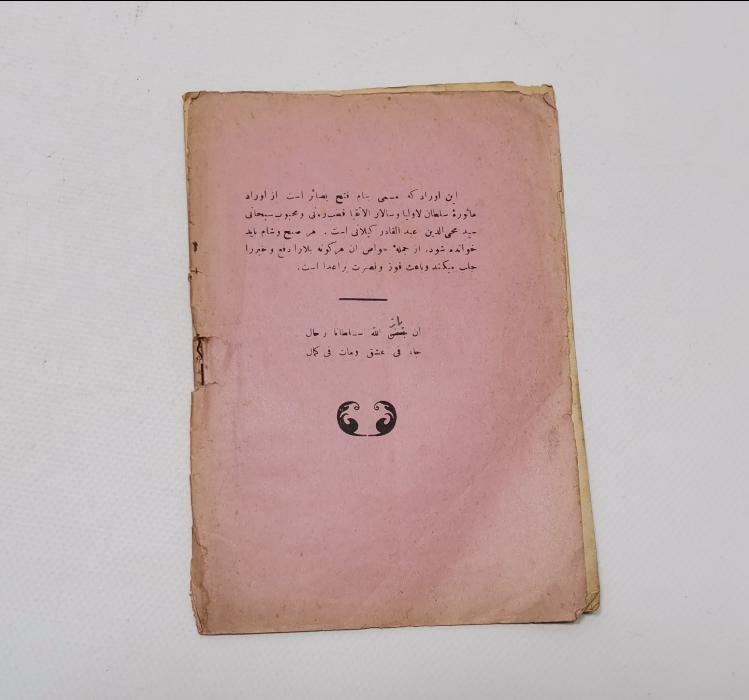 این اوراد که مسمی بنام فتح بصائر است از اوراد
مأثورۀ سلطان لاولیا وسالار الاتقیا قطب ربانی و محبوب سبحانی
سید محی‌الدین عبدالقادر کیلانی است . هر صبح وشام باید
خوانده شود. از جملۀ خواص ان هرکونه بلارا دفع و خیررا
جلب میکند وباعث فوز ونصرت براعدا است.
ان باز الله سلطانا رجال
جاء فی عشق ومات فی کمال